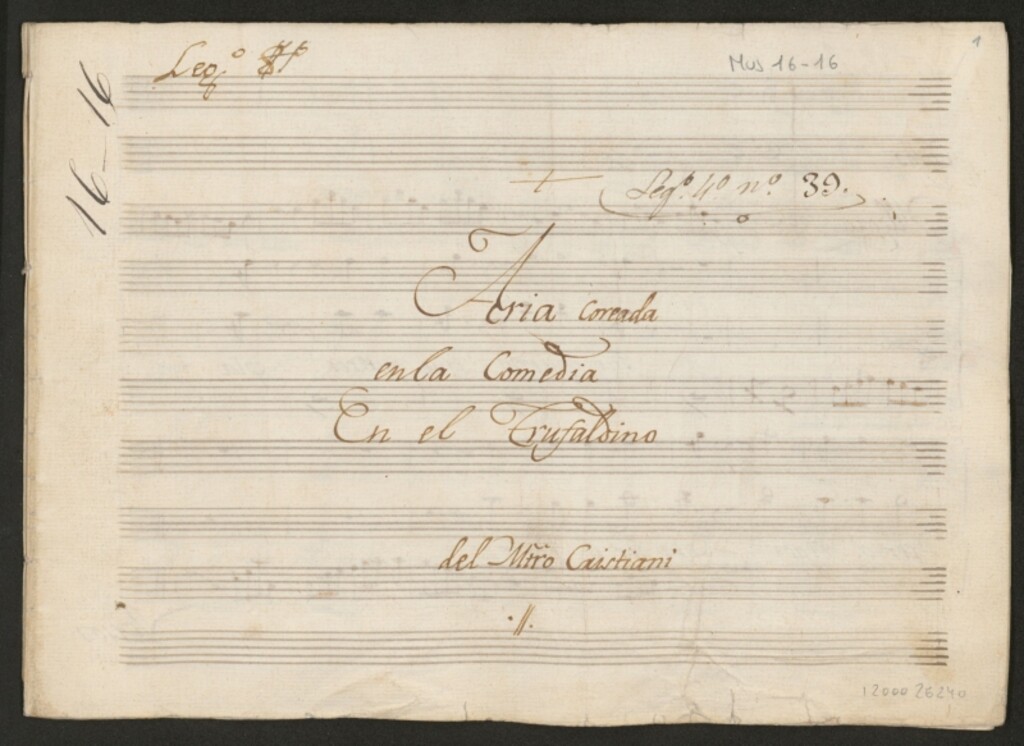 Leg.º
Mus 16-16
1
16-16
Leg.º 4º nº 39.
Aria Coreada
en la Comedia
En el Trufaldino
del Mtro Cristiani
12000 26240